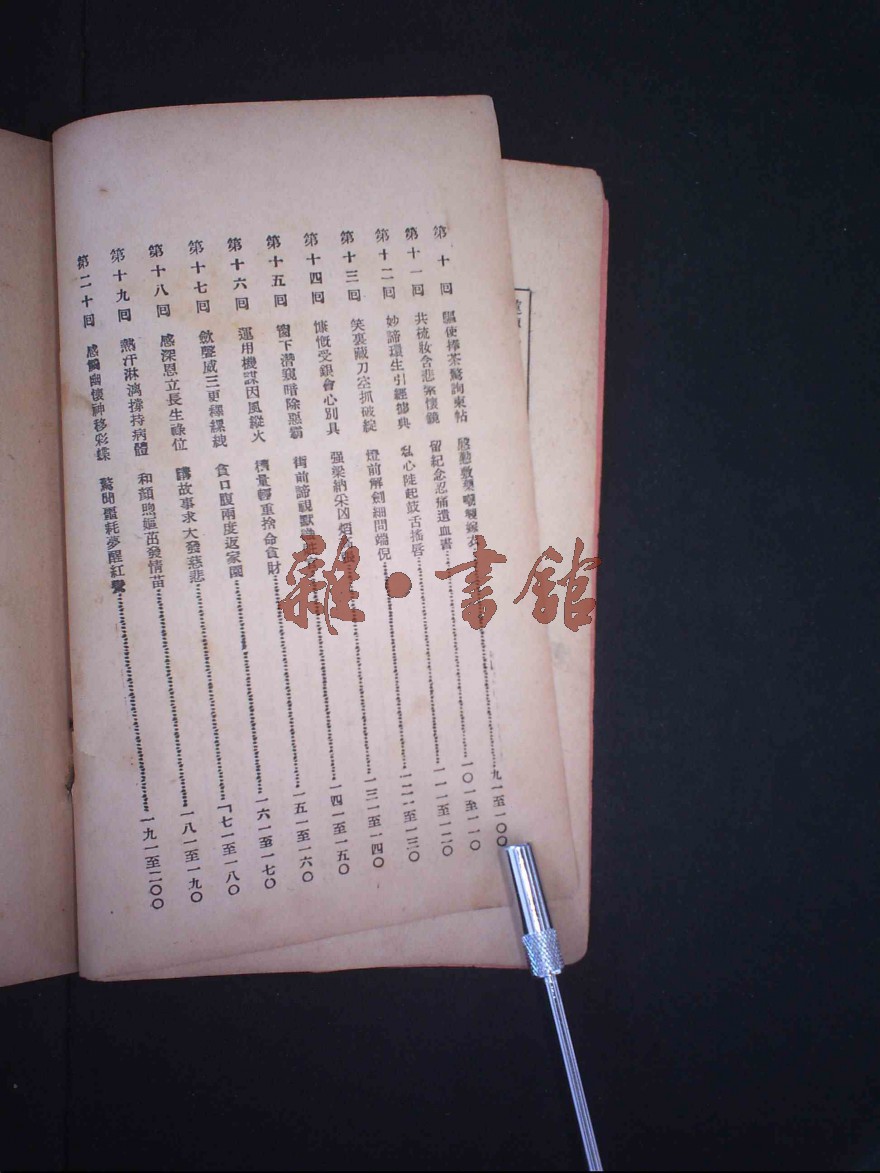 第十回 驅使捧茶驚詢柬帖 殷勤敷藥 九一至一〇〇
第十一回 共梳妝含悲索懷鏡 留紀念忍痛遺血書 一〇一至一一〇
第十二回 妙諦環生引經據典 私心陡起鼓舌搖唇 一一一至一二〇
第十三回 笑裏藏刀空抓破綻 燈前解劍細問端倪 一二一至一三〇
第十四回 慷慨受銀會心別具 强梁納采凶焰 一三一至一四〇
第十五回 窗下潛窺暗除惡霸 街前諦視默 一四一至一五〇
第十六回 運用機謀因風縱火 積量輕重捨命貪財 一五一至一六〇
第十七回 斂聲威三更釋縲絏 貪口腹兩度返家園 一六一至一七〇
第十八回 感深恩立長生祿位 講故事求大發慈悲 一七一至一八〇
第十九回 熱汗淋漓撐持病體 和顏煦嫗茁發情苗 一八一至一九〇
第二十回 感觸幽懷神移彩蝶 驚聞噩耗夢醒紅鸞 一九一至二〇〇
雜·書館